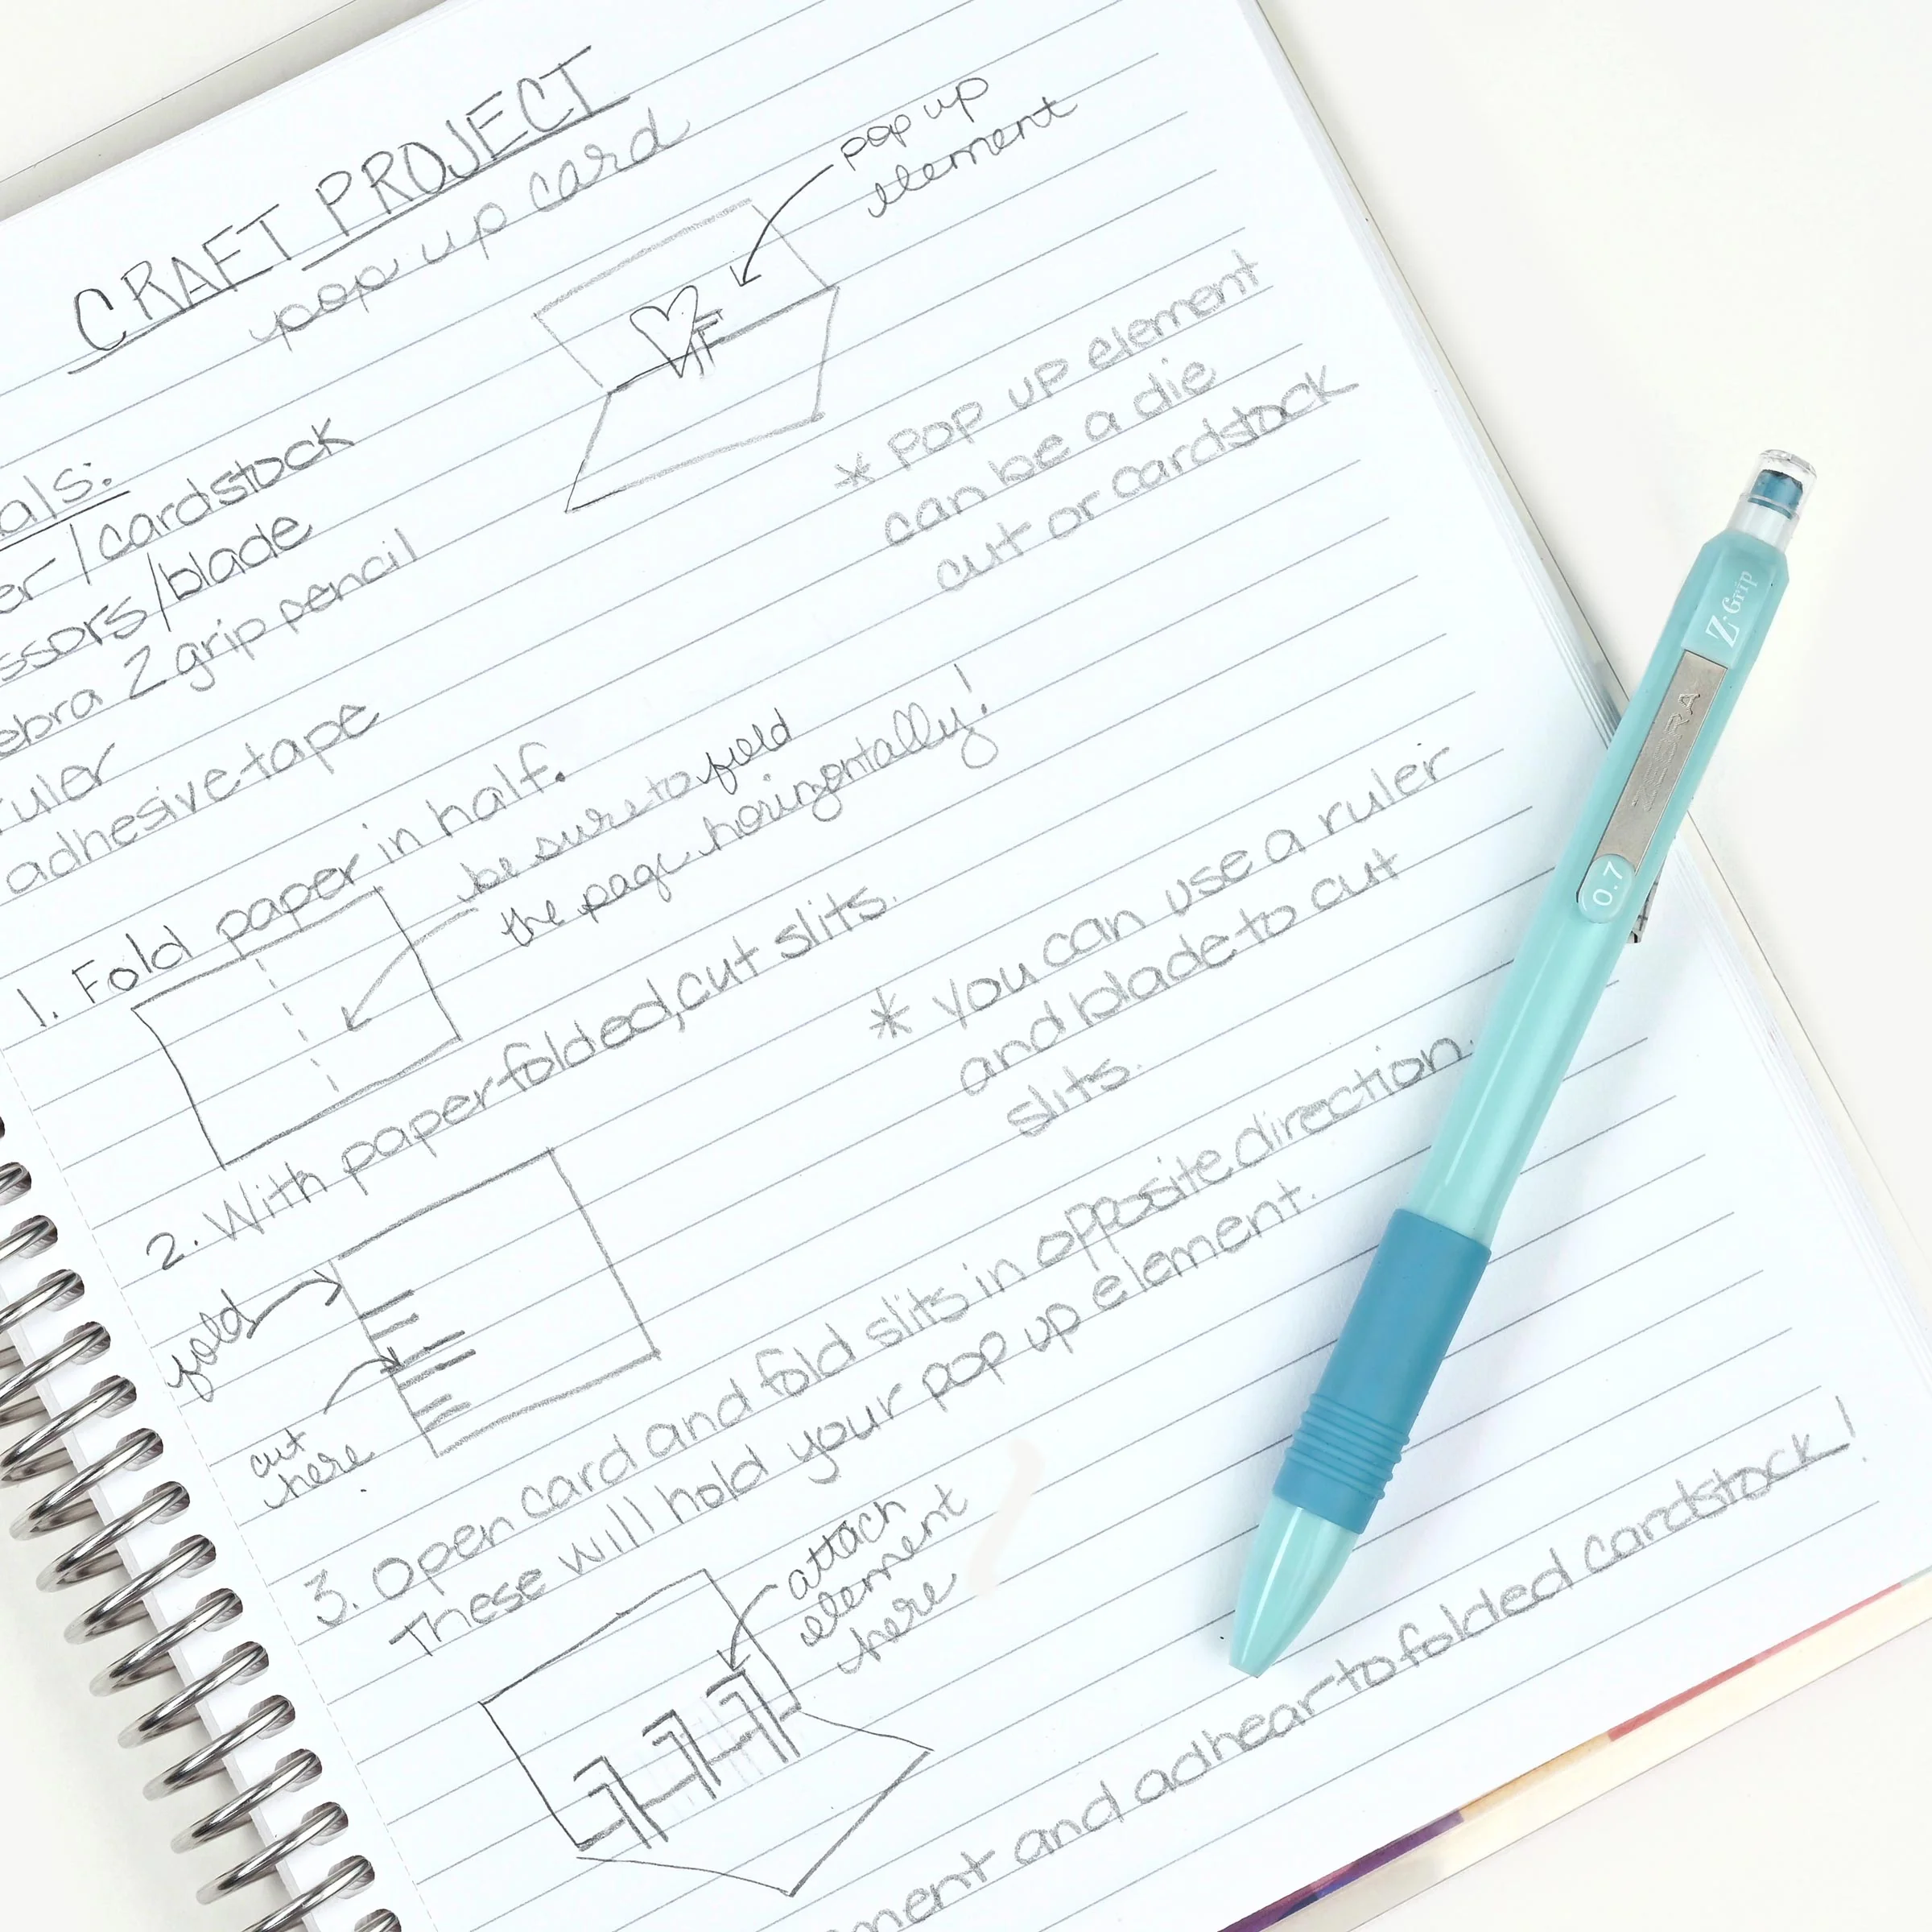 CRAFT PROJECT
pop up card
pop up
element
als:
er/cardstock
ssors/blade
ebra Z grip pencil
ruler
adhesive tape
* POP UP element
can be a die
cut or cardstock
1. Fold paper in half.
be sure to fold
the page horizontally!
2. With paper folded, cut slits.
* you can use a ruler
and blade to cut
slits.
fold
cut
here
3. Open card and fold slits in opposite direction.
These will hold your pop up element.
attach
element
here
ment and adhear to folded cardstock!
Z-Grip
ZEBRA
0.7